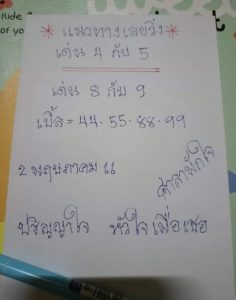 Ride
of you
*แนวทางเลขวิ่ง*
เด่น 4 กับ 5
เด่น 8 กับ 9
เบิ้ล = 44-55-88-99
2 พฤษภาคม 61
ศาลาพักใจ
ปริญญาใจ หัวใจเพื่อเธอ